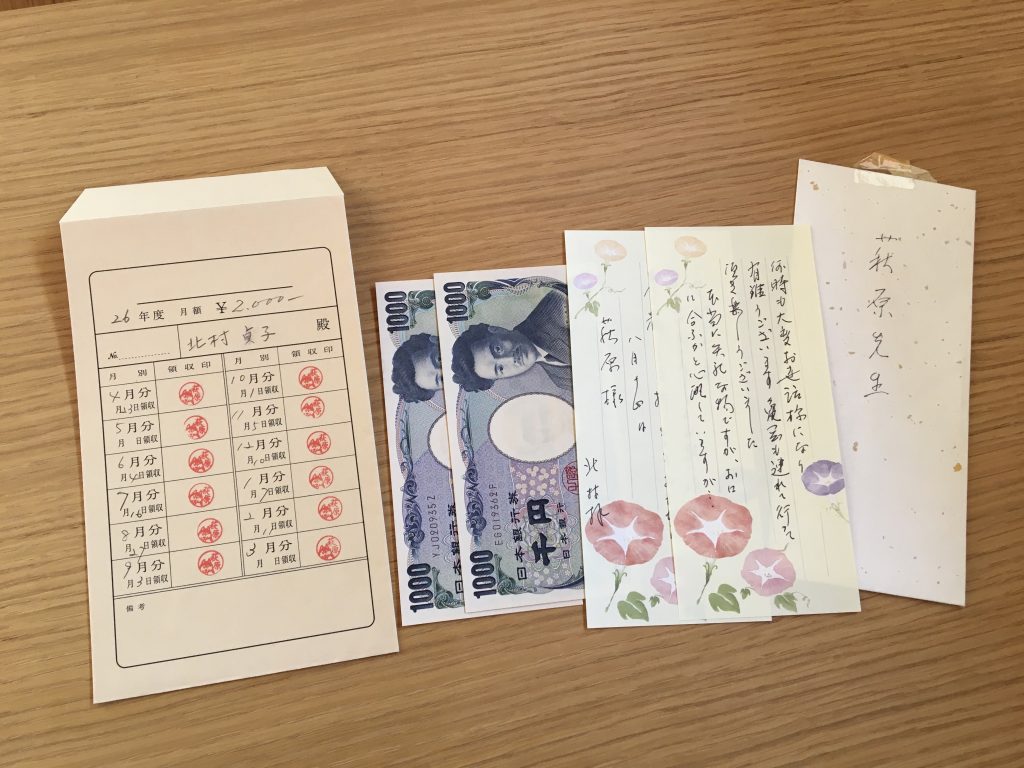 26年度 月額 ¥2.000-
№ 北村 貞子 殿
月別 領収印 月別 領収印
4月分 10月分
月13日領収 月1日領収
5月分 11月分
月 日領収 月5日領収
6月分 12月分
月4日領収 月10日領収
7月分 1月分
月16日領収 月7日領収
8月分 2月分
日領収 月11日領収
9月分 3月分
月3日領収 月 日領収
備考
1000
YJ020935Z
1000
日本銀行券
1000
EG019362P
1000
日本銀行券
千円
日本銀行
八月十四日
萩原様
北村
何時も大変お世話様になり
有難うございます
連れて行って
ございました
本当に失礼な物ですが お口
に合うかと心配していますが…
萩原先生